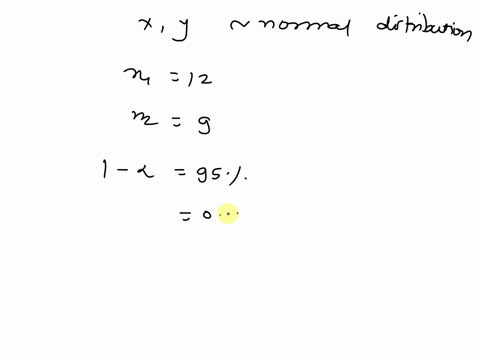 x, y ~ normal distribution
n₁ = 12
n₂ = 9
1 - α = 95 %.
= 0